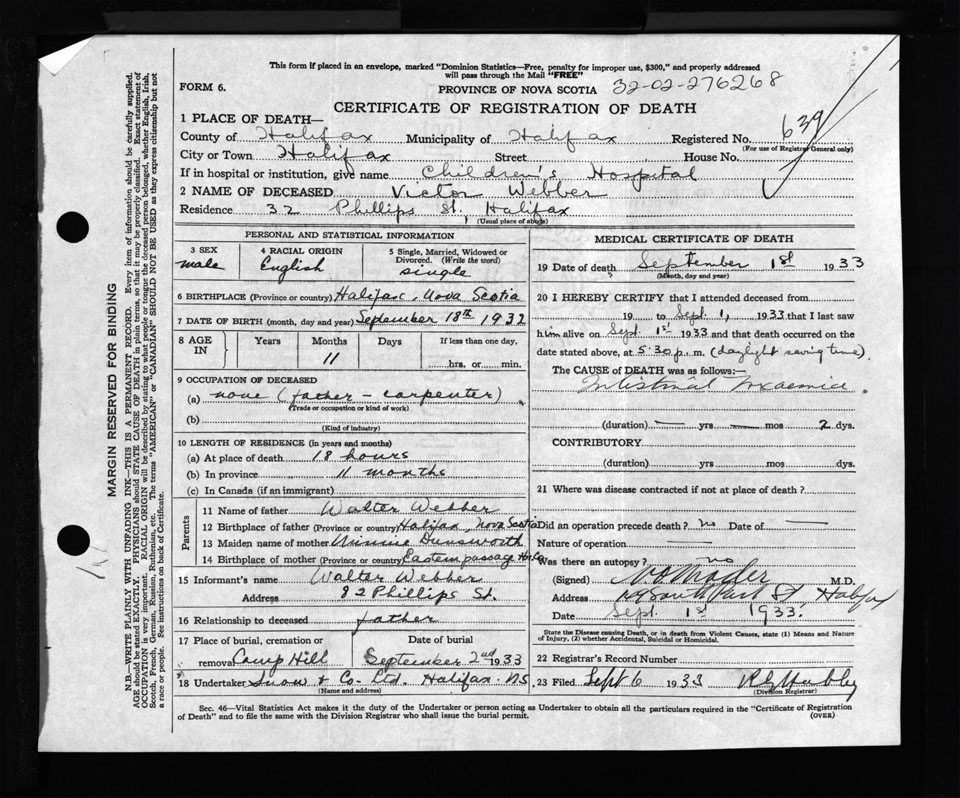 This form if placed in an envelope, marked "Dominion Statistics—Free, penalty for improper use, $300," and properly addressed
will pass through the Mail "FREE"
FORM 6.
PROVINCE OF NOVA SCOTIA 32-02-276268
CERTIFICATE OF REGISTRATION OF DEATH
1 PLACE OF DEATH—
County of Halifax Municipality of Halifax Registered No. 639
(For use of Registrar General only)
City or Town Halifax Street House No.
If in hospital or institution, give name Children's Hospital
2 NAME OF DECEASED Victor Webber
Residence 32 Phillips St, Halifax
(Usual place of abode)
PERSONAL AND STATISTICAL INFORMATION
3 SEX 4 RACIAL ORIGIN 5 Single, Married, Widowed or
Divorced. (Write the word)
male English single
6 BIRTHPLACE (Province or country) Halifax, Nova Scotia
7 DATE OF BIRTH (month, day and year) September 18th 1932
8 AGE IN Years Months Days If less than one day,
11 hrs. or min.
9 OCCUPATION OF DECEASED
(a) none (father - carpenter)
(Trade or occupation or kind of work)
(b)
(Kind of industry)
10 LENGTH OF RESIDENCE (in years and months)
(a) At place of death 18 hours
(b) In province 11 months
(c) In Canada (if an immigrant)
Parents
11 Name of father Walter Webber
12 Birthplace of father (Province or country) Halifax, Nova Scotia
13 Maiden name of mother Minnie Dunsworth
14 Birthplace of mother (Province or country) Eastern passage Hfx Co
15 Informant's name Walter Webber
Address 82 Phillips St.
16 Relationship to deceased father
17 Place of burial, cremation or Date of burial
removal Camp Hill September 2nd 1933
18 Undertaker Snow & Co. Ltd. Halifax NS
(Name and address)
MEDICAL CERTIFICATE OF DEATH
19 Date of death September 1st 1933
(Month, day and year)
20 I HEREBY CERTIFY that I attended deceased from
19 to Sept. 1, 1933 that I last saw
him alive on Sept. 1st 1933 and that death occurred on the
date stated above, at 5.30 p.m. (daylight saving time).
The CAUSE of DEATH was as follows:—
Intestinal Toxaemia
(duration) — yrs — mos 2 dys.
CONTRIBUTORY
(duration) yrs mos dys.
21 Where was disease contracted if not at place of death?
Did an operation precede death? no Date of —
Nature of operation —
Was there an autopsy? no
(Signed) M.D.
Address South Park St Halifax
Date Sept. 1st 1933.
State the Disease causing Death, or in death from Violent Causes, state (1) Means and Nature
of Injury, (2) whether Accidental, Suicidal or Homicidal.
22 Registrar's Record Number
23 Filed Sept 6 1933
(Division Registrar)
Sec. 46—Vital Statistics Act makes it the duty of the Undertaker or person acting as Undertaker to obtain all the particulars required in the "Certificate of Registration
of Death" and to file the same with the Division Registrar who shall issue the burial permit.
(OVER)
MARGIN RESERVED FOR BINDING
N.B.—WRITE PLAINLY WITH UNFADING INK—THIS IS A PERMANENT RECORD. Every item of information should be carefully supplied.
AGE should be stated EXACTLY. PHYSICIANS should STATE CAUSE OF DEATH in plain terms, so that it may be properly classified. Exact statement of
OCCUPATION is very important. RACIAL ORIGIN will be described by stating to what people or tongue the deceased person belonged, whether English, Irish,
Scotch, French, German, Russian, Ruthenian, etc. The terms "AMERICAN" or "CANADIAN" SHOULD NOT BE USED as they express citizenship but not
a race or people. See instructions on back of Certificate.